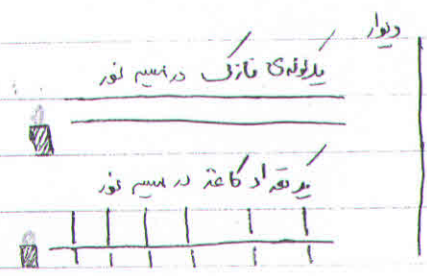 دیوار
یک لوله‌ی نازک در مسیر نور
یک تعداد کاغذ در مسیر نور